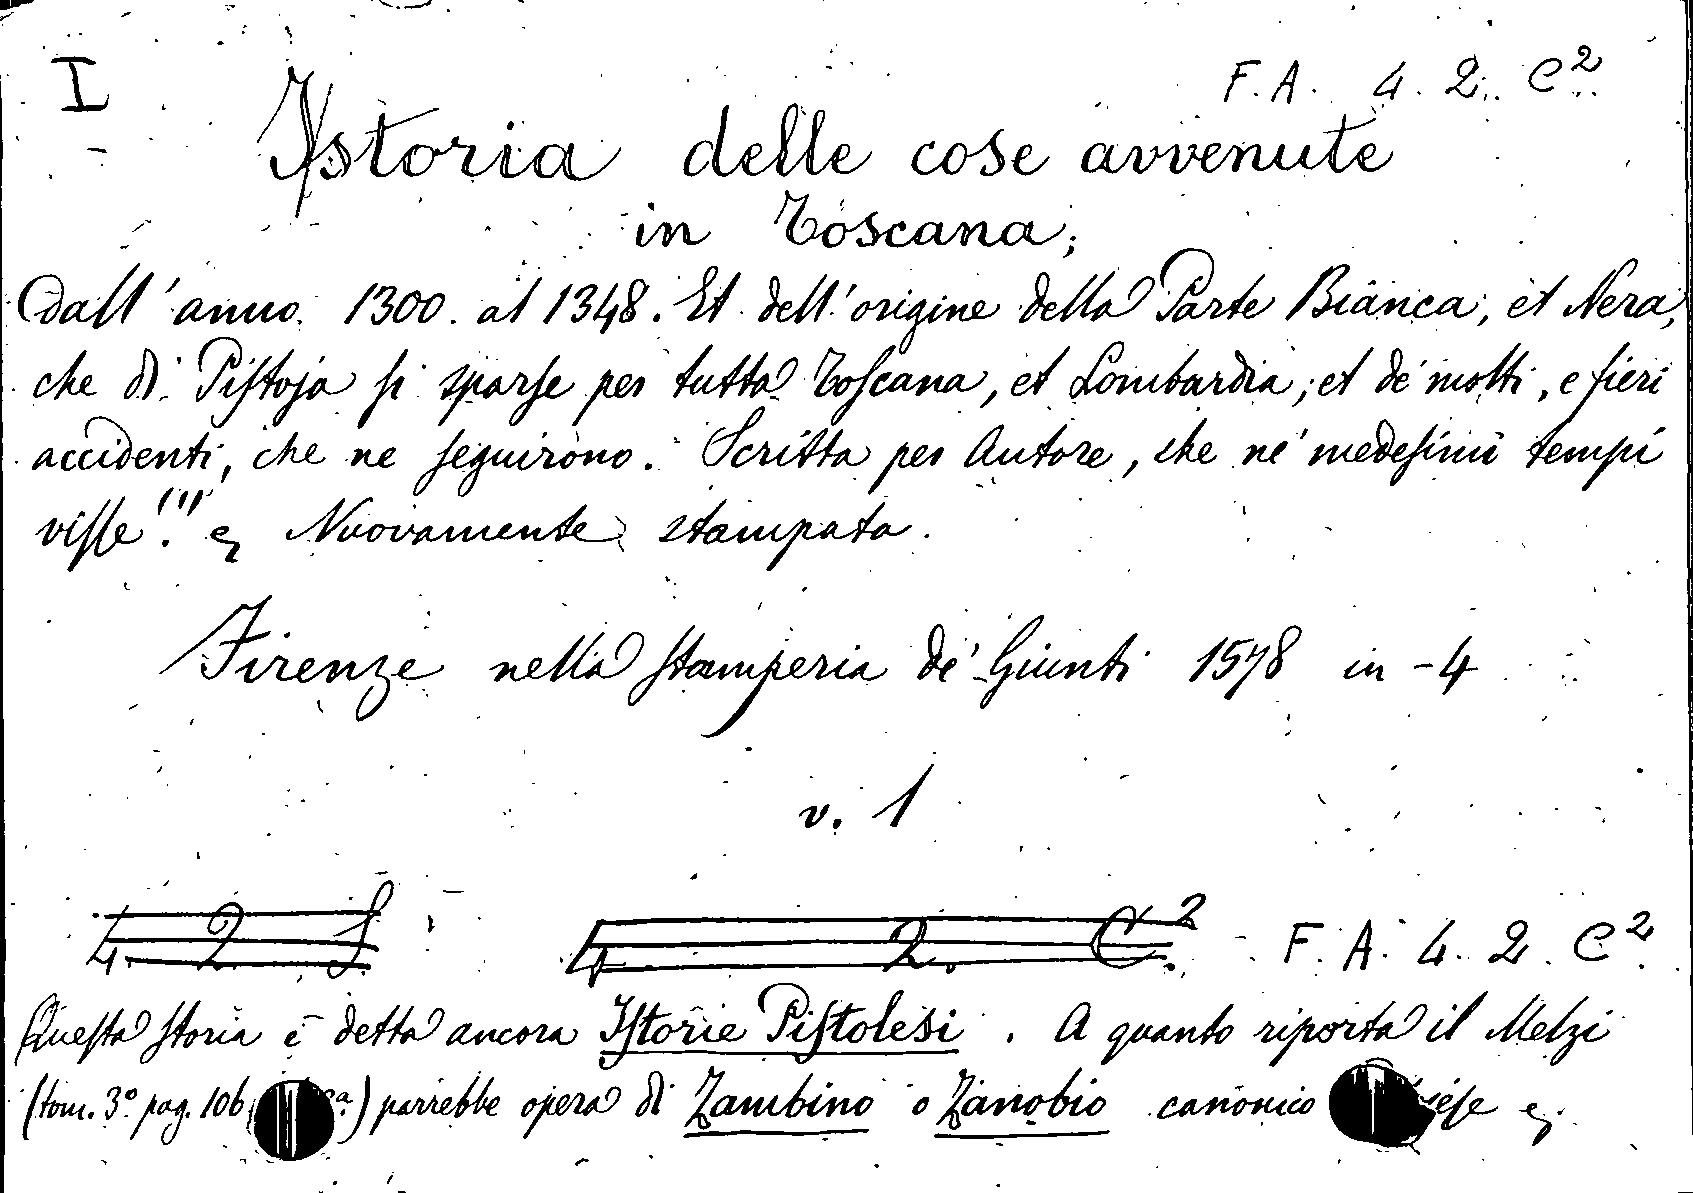 I
F. A. 4. 2. C²
Istoria delle cose avvenute
in Toscana;
Dall' anno 1300. al 1348. Et dell' origine della Parte Bianca, et Nera,
che di Pistoja si sparse per tutta Toscana, et Lombardia; et de' molti, e fieri
accidenti, che ne seguirono. Scritta per Autore, che ne' medesimi tempi
visse.(1) e Nuovamente stampata.
Firenze nella stamperia de' Giunti 1578 in-4
v. 1
4. 2 4. 2. C² F. A. 4. 2. C²
Questa storia è detta ancora Istorie Pistolesi. A quanto riporta il Melzi
(tom. 3° pag. 106 parrebbe opera di Zambino o Zanobio canonico